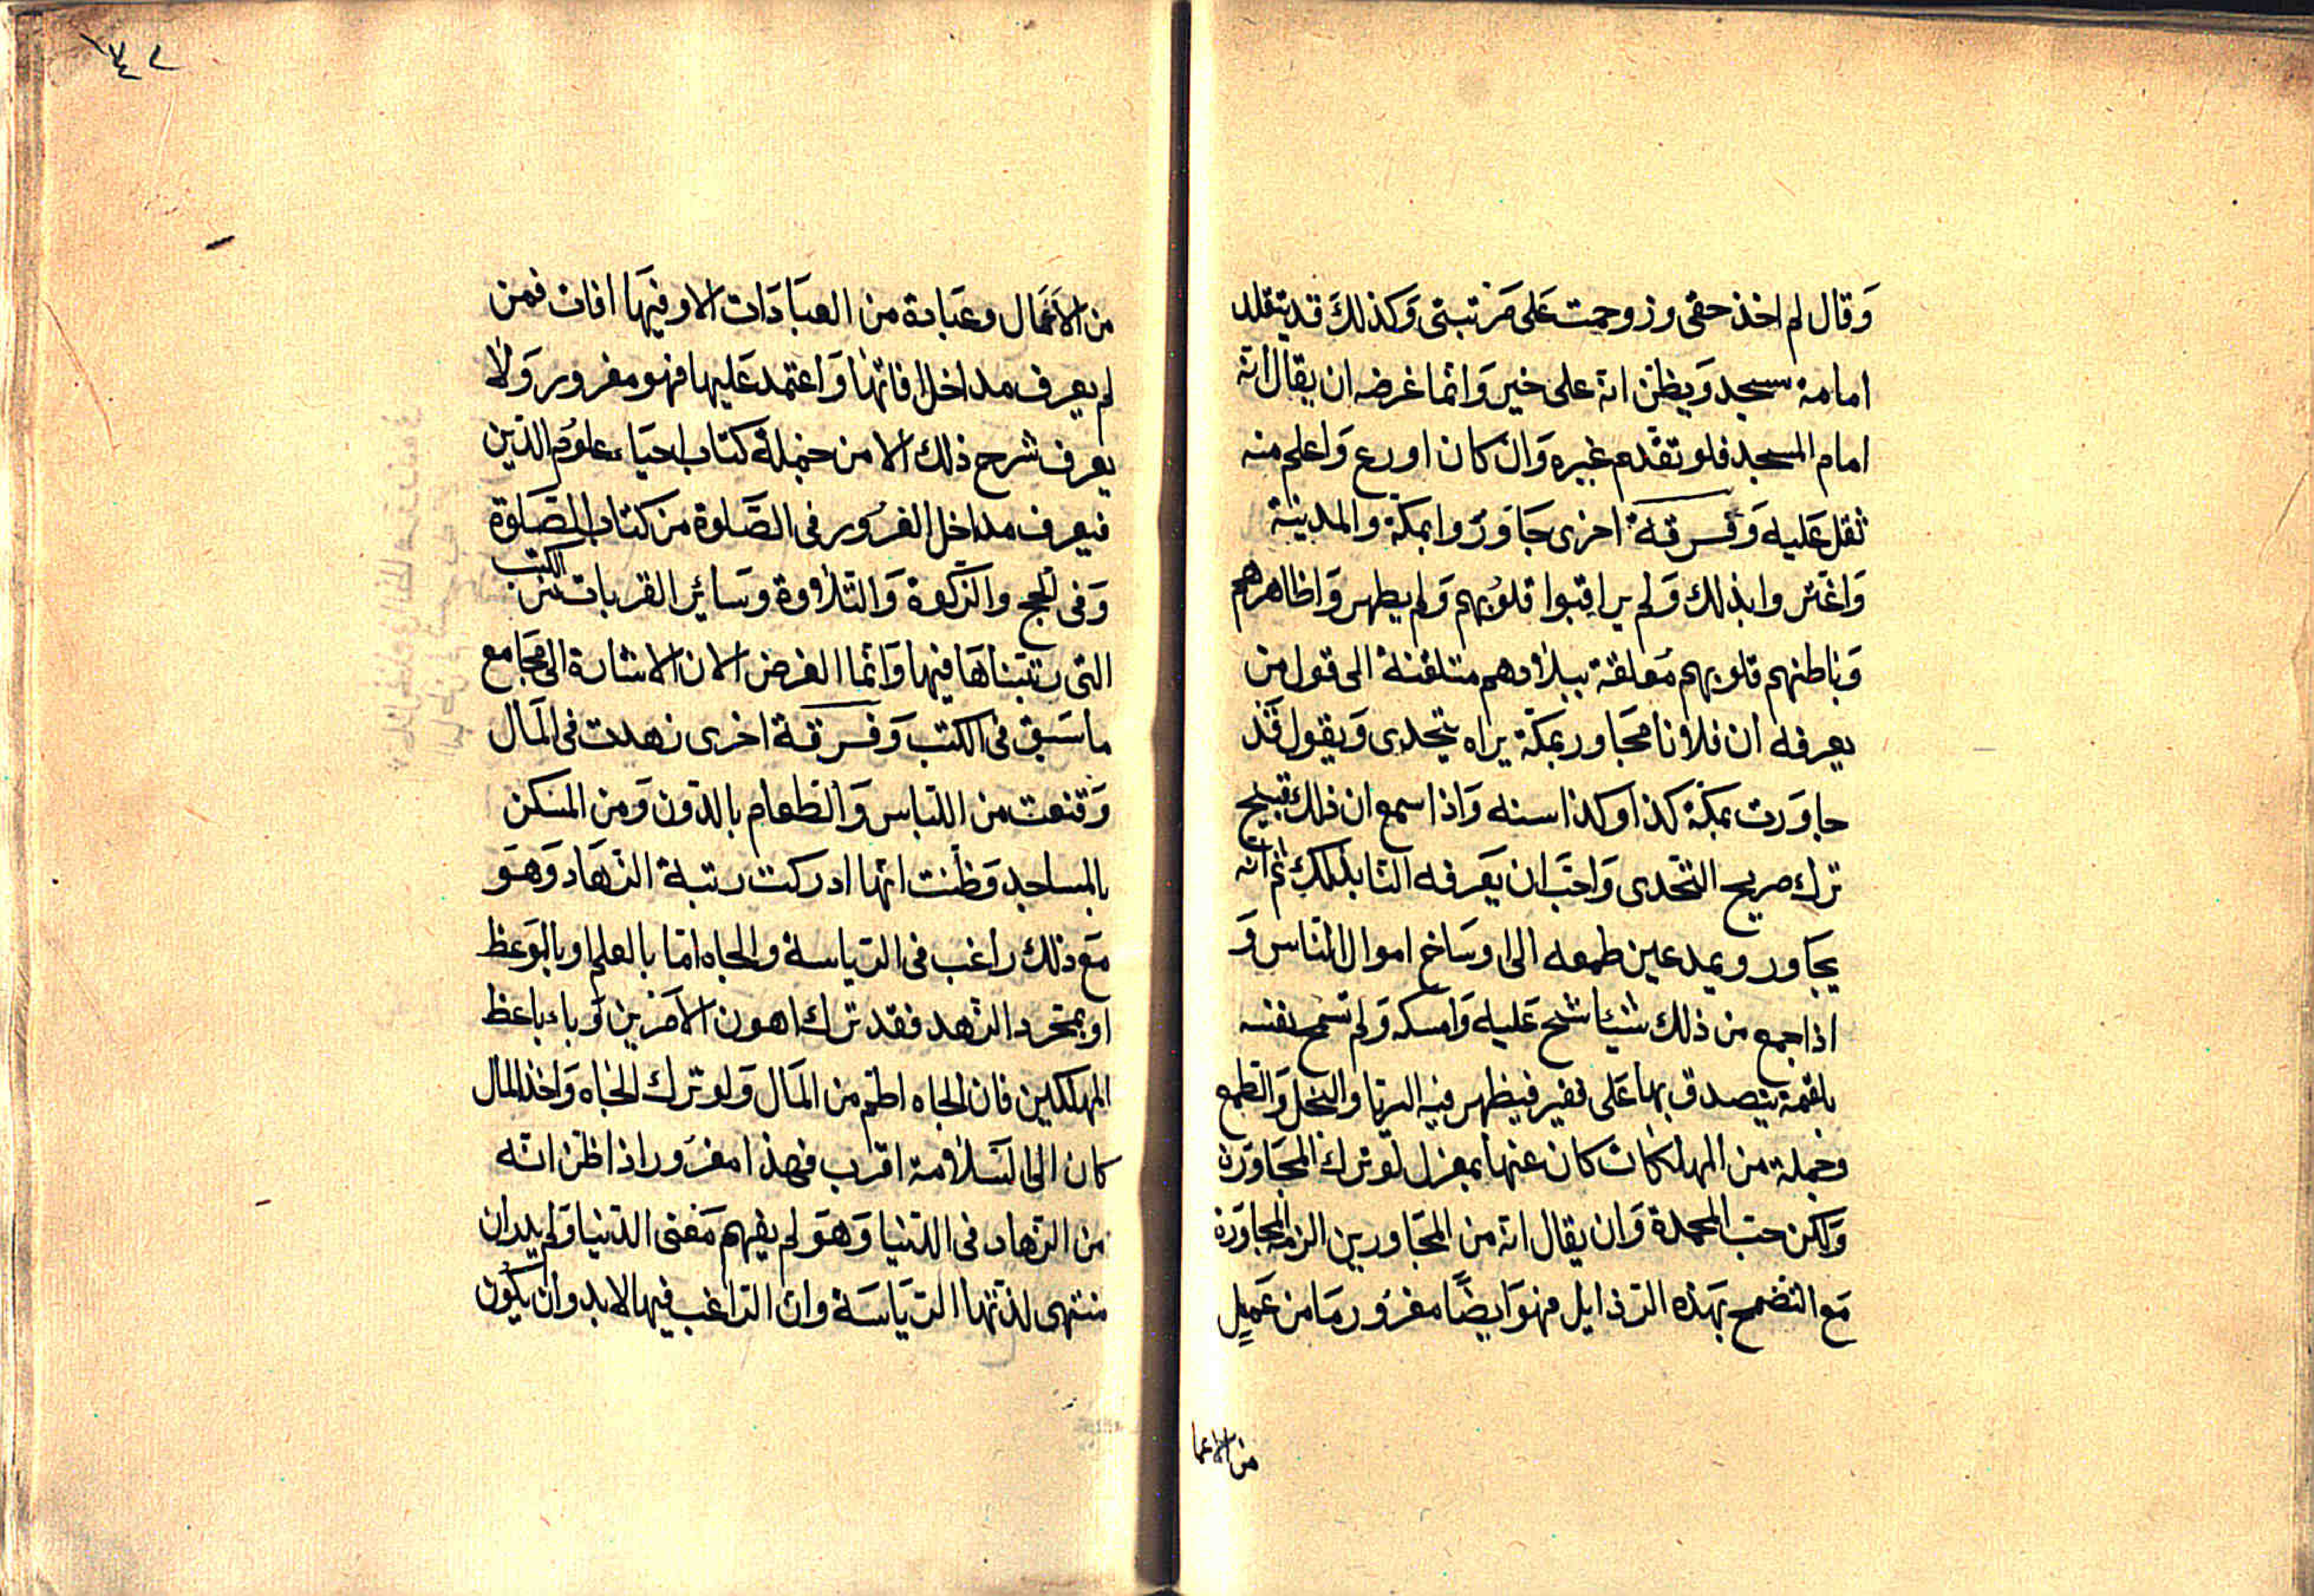 وَقال لم اخذ حقى وزوحمت عَلى مَرتبتى وَكذلكَ قد يتقلد
امامة مسجد وَيظنّ انه على خير وَانما غرضه ان يقال انه
امام المسجد فلو تقدم غيره وَان كان اورع وَاعلم منه
ثقل عَليه وَفرقة اخرى جَاوَرُوا بمكة والمدينة
وَاغتروا بذلك وَلم يراقبوا قلوُبهم وَلم يطهروَا ظاهرهم
وَباطنهم قلوبهم مُعلقة ببلادهم متلفتة الى قول من
يعرفه ان فلانا مجَاور بمكة يراه يتحدى وَيقول قَد
جاوَرت بمكة كذا وكذا سنه وَاذا سمع ان ذلك قبيح
ترك صريح التحّدى وَاحبّ ان يَعرفه النا بذلك ثم انه
يجَاور ويمد عين طمعه الى اوسَاخ اموال الناس وَ
اذا جمع من ذلك شيئا شح عَليه وَامسكه وَلم تسمح نفسه
بلقمة يتصدق بها عَلى فقير فيظهر فيه الريا والبخل وَالطمع
وجملة من المهلكات كان عنها بمعزل لو ترك المجَاوَرة
وَلكن حبّ المحمدة وَان يقال انه من المجَاورين الزمه المجاوَرة
مَع التضمخ بهَذه الرذايل فهوَ ايضًا مغرُور وَمَا من عَمَلٍ
من الاعما
١٤٢
من الاَعمَال وعبَادة من العبَادَات الا وفيهَا افات فمن
لم يعرف مداخل افاتها وَاعتمد عَليها فهو مغرور وَلا
يعرف شرح ذلك الا من جملة كتاب احيَاء علوُم الدّين
فيعرف مداخل الغرُور فى الصَّلوة من كتاب الصَّلوَة
وَفى الحج والزّكوة وَالتلاوة وَسَائر القربات من الكتب
التى رتبنَاهَا فيها وَانما الغرض الان الاشارة الى مجَامع
ما سَبق فى الكتب وَفرقة اخرى زهدت فى المَال
وَقنعت من اللباس وَالطعام بالدّون وَمن المسَكن
بالمساجد وَظنت انها ادركت رتبة الزّهَاد وَهوَ
مَع ذلك راغب فى الرّياسة والجاه امّا بالعلم او بالوَعظ
او بمجرد الزهد فقد ترك اهون الاَمرَين وَباء باعظ
المهلكين فان الجاه اطم من المَال وَلو ترك الجَاه وَاخذ المال
كان الى السَّلامة اقرب فهذا مغرُور اذا ظن انّه
من الزهاد فى الدّنيا وَهوَ لم يفهم مَعنى الدّنيا وَلم يدر ان
منتهى لذتها الرّيَاسَة وان الرّاغب فيها لا بد وان يكوُن